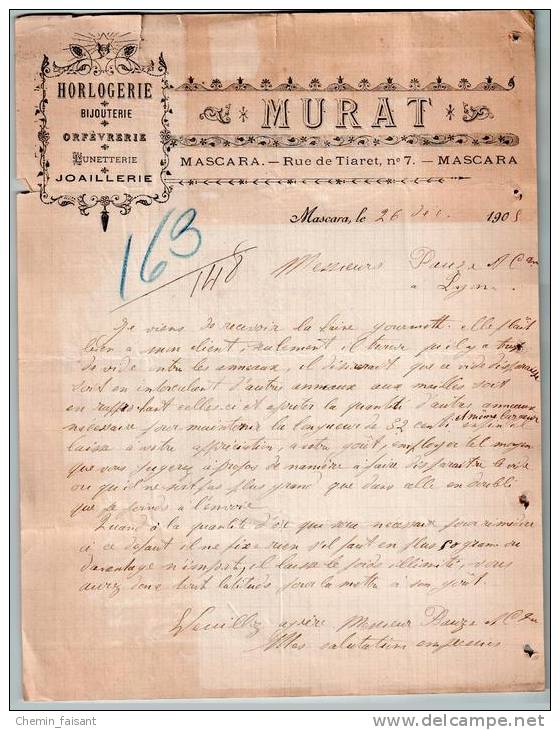 HORLOGERIE
BIJOUTERIE
ORFÈVRERIE
LUNETTERIE
JOAILLERIE
MURAT
MASCARA. — Rue de Tiaret, nº 7. — MASCARA
Mascara, le 26 190
163
148
Messieurs
à Lyon
Je viens de recevoir la elle plaît
bien à mon client, seulement il qu'il y a
de vide entre les anneaux, il que ce vide
soit en intercalant d'autres anneaux aux mailles soit
en celles ci et ajouter la quantité d'autres anneaux
nécessaire pour maintenir la longueur de 52 cent. et même largeur
laisse à votre appréciation, à votre goût, employer tel moyen
que vous jugerez à propos de manière à faire disparaître le vide
ou qu'il ne soit pas plus grand que dans celle en doublé
que je joinds à l'envoie.
Quand à la quantité d'or qui sera nécessaire pour remédier
à ce défaut il ne fixe rien s'il faut en plus 50 gram ou
davantage n'importe, il laisse le poids illimité, vous
aurez donc tout latitude pour la mettre à son goût.
Veuillez Messieurs
Mes salutations empressées
Chemin_faisant
www.delcampe.net